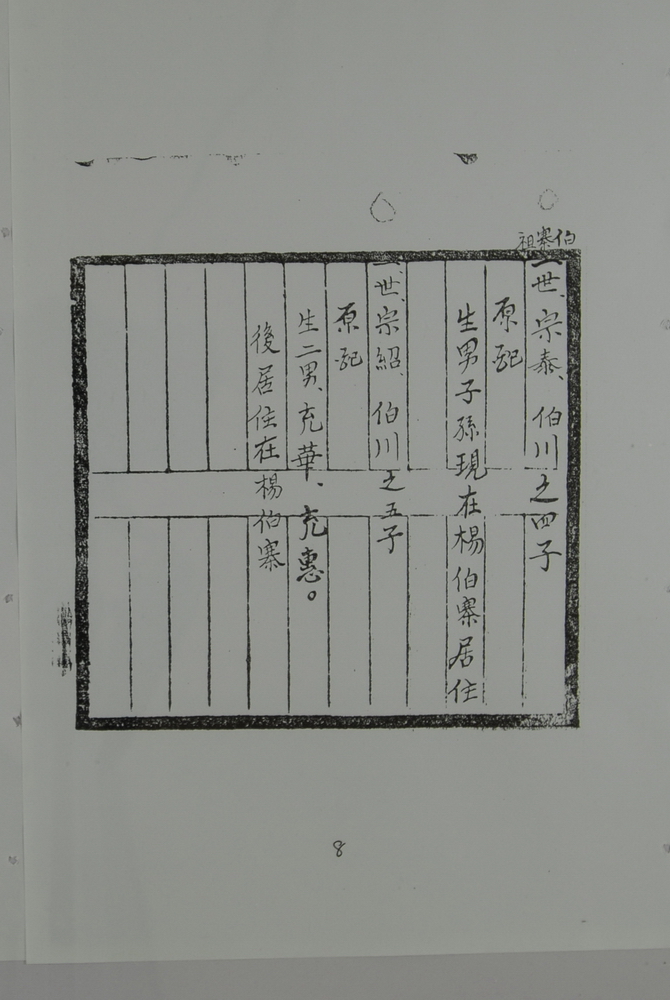 伯寨祖
二世、宗泰、伯川之四子
原配
生男子孫現在楊伯寨居住
二世、宗紹、伯川之五子
原配
生二男、充華、充惠。
後居住在楊伯寨
8